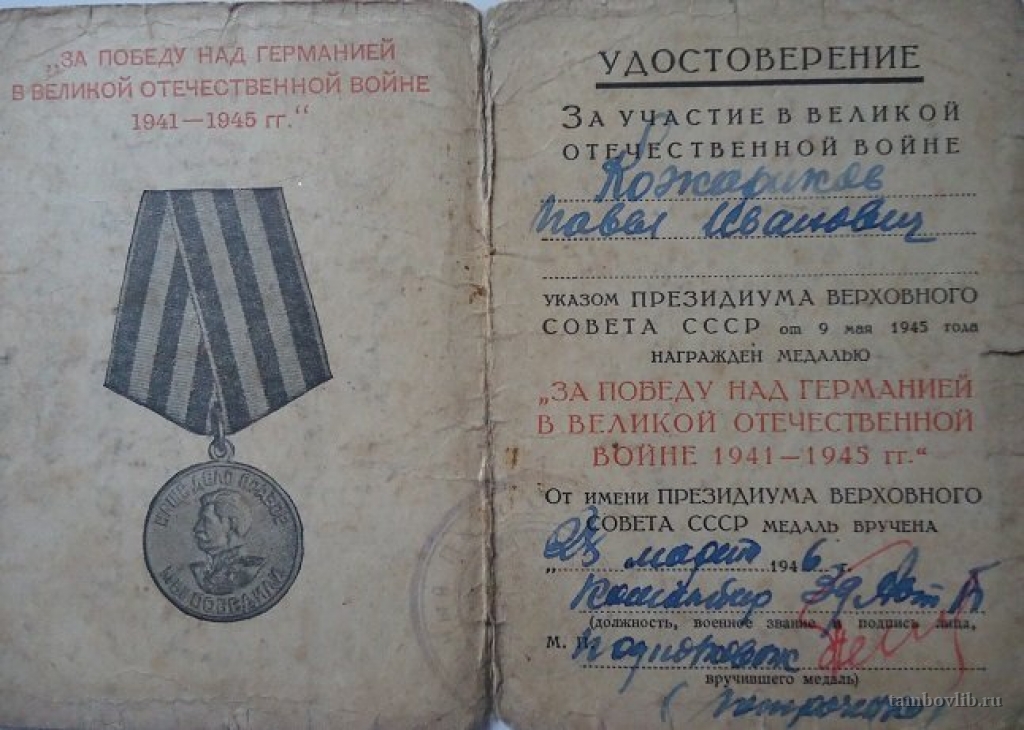 „ЗА ПОБЕДУ НАД ГЕРМАНИЕЙ
В ВЕЛИКОЙ ОТЕЧЕСТВЕННОЙ ВОЙНЕ
1941—1945 гг.“
НАШЕ ДЕЛО ПРАВОЕ
МЫ ПОБЕДИЛИ
УДОСТОВЕРЕНИЕ
ЗА УЧАСТИЕ В ВЕЛИКОЙ
ОТЕЧЕСТВЕННОЙ ВОЙНЕ
Кожариков
Павел Иванович
УКАЗОМ ПРЕЗИДИУМА ВЕРХОВНОГО
СОВЕТА СССР от 9 мая 1945 года
НАГРАЖДЕН МЕДАЛЬЮ
„ЗА ПОБЕДУ НАД ГЕРМАНИЕЙ
В ВЕЛИКОЙ ОТЕЧЕСТВЕННОЙ
ВОЙНЕ 1941—1945 гг.“
От имени ПРЕЗИДИУМА ВЕРХОВНОГО
СОВЕТА СССР МЕДАЛЬ ВРУЧЕНА
март 1946 г.
Командир
(должность, военное звание и подпись лица,
М. П.
вручившего медаль)
tambovlib.ru